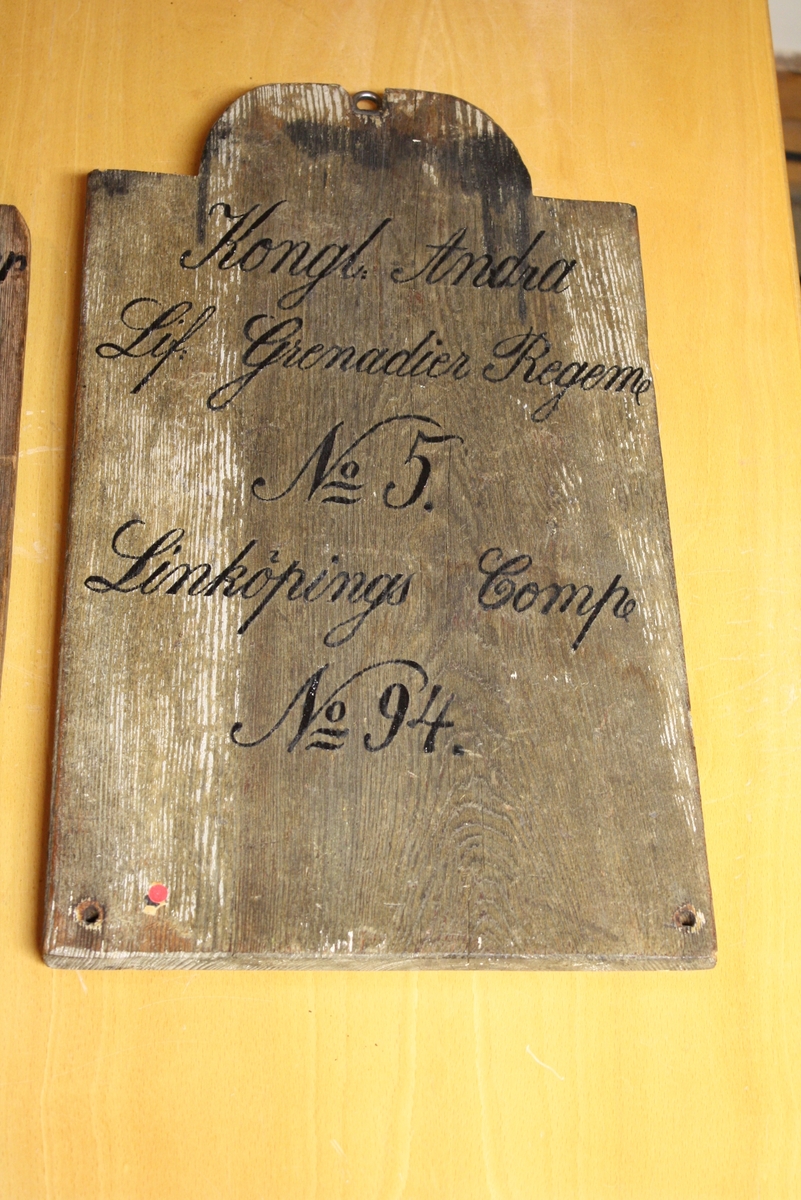 Kongl. Andra
Lif. Grenadier Regem
No 5.
Linköpings Comp
No 94.